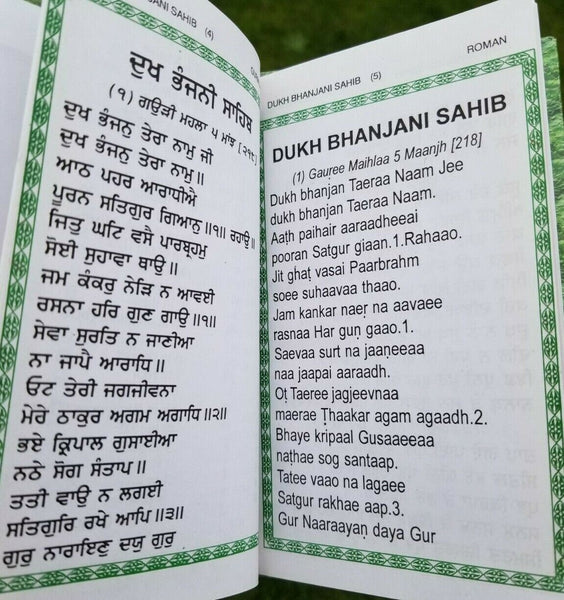 NJANI SAHIB (4)
ਦੁਖ ਭੰਜਨੀ ਸਾਹਿਬ
(੧) ਗਉੜੀ ਮਹਲਾ ੫ ਮਾਂਝ [੨੧੮]
ਦੁਖ ਭੰਜਨੁ ਤੇਰਾ ਨਾਮੁ ਜੀ
ਦੁਖ ਭੰਜਨੁ ਤੇਰਾ ਨਾਮੁ॥
ਆਠ ਪਹਰ ਆਰਾਧੀਐ
ਪੂਰਨ ਸਤਿਗੁਰ ਗਿਆਨੁ॥੧॥ ਰਹਾਉ॥
ਜਿਤੁ ਘਟਿ ਵਸੈ ਪਾਰਬ੍ਰਹਮੁ
ਸੋਈ ਸੁਹਾਵਾ ਥਾਉ॥
ਜਮ ਕੰਕਰੁ ਨੇੜਿ ਨ ਆਵਈ
ਰਸਨਾ ਹਰਿ ਗੁਣ ਗਾਉ॥੧॥
ਸੇਵਾ ਸੁਰਤਿ ਨ ਜਾਣੀਆ
ਨਾ ਜਾਪੈ ਆਰਾਧਿ॥
ਓਟ ਤੇਰੀ ਜਗਜੀਵਨਾ
ਮੇਰੇ ਠਾਕੁਰ ਅਗਮ ਅਗਾਧਿ॥੨॥
ਭਏ ਕ੍ਰਿਪਾਲ ਗੁਸਾਈਆ
ਨਠੇ ਸੋਗ ਸੰਤਾਪ॥
ਤਤੀ ਵਾਉ ਨ ਲਗਈ
ਸਤਿਗੁਰਿ ਰਖੇ ਆਪਿ॥੩॥
ਗੁਰੁ ਨਾਰਾਇਣੁ ਦਯੁ ਗੁਰੁ
DUKH BHANJANI SAHIB (5) ROMAN
DUKH BHANJANI SAHIB
(1) Gauree Maihlaa 5 Maanjh [218]
Dukh bhanjan Taeraa Naam Jee
dukh bhanjan Taeraa Naam.
Aaṭh paihair aaraadheeai
pooran Satgur giaan.1.Rahaao.
Jit ghaṭ vasai Paarbrahm
soee suhaavaa thaao.
Jam kankar naeṛ na aavaee
rasnaa Har guṇ gaao.1.
Saevaa surt na jaaṇeeaa
naa jaapai aaraadh.
Oṭ Taeree jagjeevnaa
maerae Ṭhaakar agam agaadh.2.
Bhaye kripaal Gusaaeeaa
naṭhae sog santaap.
Tatee vaao na lagaee
Satgur rakhae aap.3.
Gur Naaraayaṇ daya Gur